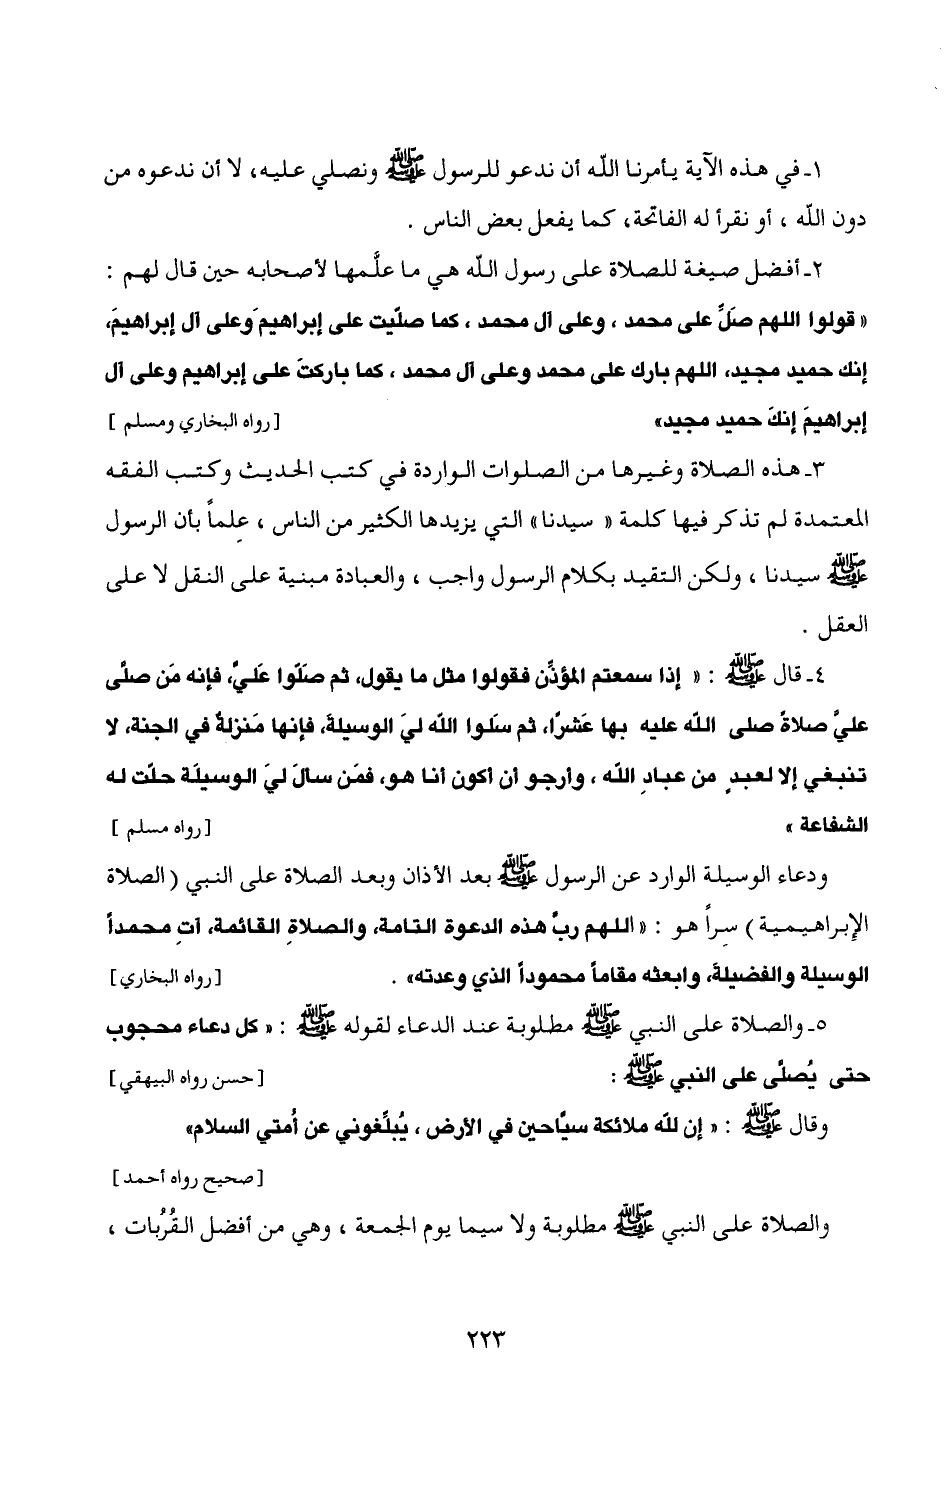 ١ـ في هذه الآية يأمرنا الله أن ندعو للرسول ﷺ ونصلي عليه، لا أن ندعوه من
دون الله ، أو نقرأ له الفاتحة، كما يفعل بعض الناس .
٢ـ أفضل صيغة للصلاة على رسول الله هي ما علَّمها لأصحابه حين قال لهم :
« قولوا اللهم صَلِّ على محمد ، وعلى آل محمد ، كما صلّيت على إبراهيمَ وعلى آل إبراهيمَ،
إنك حميد مجيد، اللهم بارك على محمد وعلى آل محمد ، كما باركتَ على إبراهيم وعلى آل
إبراهيمَ إنكَ حميد مجيد» [رواه البخاري ومسلم ]
٣ـ هذه الصلاة وغيرها من الصلوات الواردة في كتب الحديث وكتب الفقه
المعتمدة لم تذكر فيها كلمة « سيدنا» التي يزيدها الكثير من الناس ، علماً بأن الرسول
ﷺ سيدنا ، ولكن التقيد بكلام الرسول واجب ، والعبادة مبنية على النقل لا على
العقل .
٤ـ قال ﷺ : « إذا سمعتم المؤذِّن فقولوا مثل ما يقول، ثم صَلّوا عَليَّ، فإنه مَن صلَّى
عليَّ صلاةً صلى الله عليه بها عَشرًا، ثم سَلوا الله ليَ الوسيلةَ، فإنها مَنزلةٌ في الجنة، لا
تنبغي إلا لعبدٍ من عبادِ الله ، وأرجو أن أكون أنا هو، فمَن سألَ ليَ الوسيلَة حلّت له
الشفاعة » [رواه مسلم ]
ودعاء الوسيلة الوارد عن الرسول ﷺ بعد الأذان وبعد الصلاة على النبي (الصلاة
الإبراهيمية) سراً هو : «اللهم ربَّ هذه الدعوة التامة، والصلاةِ القائمة، آتِ محمداً
الوسيلة والفضيلةَ، وابعثه مقاماً محموداً الذي وعدته» . [رواه البخاري]
٥ـ والصلاة على النبي ﷺ مطلوبة عند الدعاء لقوله ﷺ : « كل دعاء محجوب
حتى يُصلَّى على النبي ﷺ : [حسن رواه البيهقي]
وقال ﷺ : « إن لله ملائكة سيَّاحين في الأرض ، يُبلِّغوني عن أمتي السلام»
[صحيح رواه أحمد]
والصلاة على النبي ﷺ مطلوبة ولا سيما يوم الجمعة ، وهي من أفضل القُرُبات ،
٢٢٣